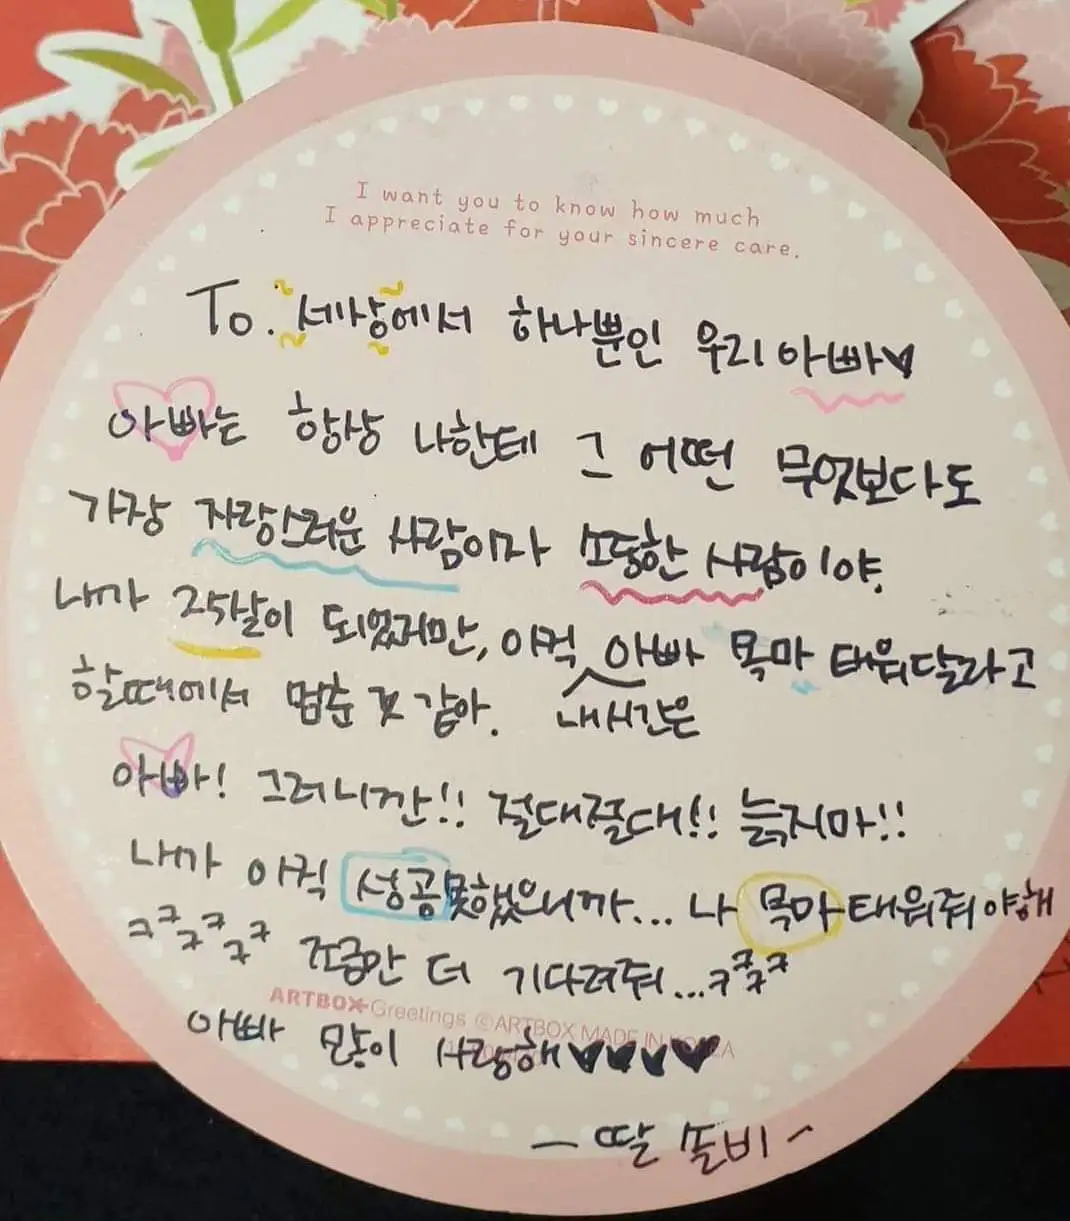 I want you to know how much
I appreciate for your sincere care.
To. 세상에서 하나뿐인 우리 아빠♥
아빠는 항상 나한테 그 어떤 무엇보다도
가장 자랑스러운 사람이자 소중한 사람이야.
내가 25살이 되었지만, 아직 아빠 목마 태워달라고
할때에서 멈춘 것 같아. 내시간은
아빠! 그러니깐!! 절대절대!! 늙지마!!
내가 아직 성공못했으니까... 나 목마 태워줘야해
ㅋㅋㅋㅋㅋㅋ 조금만 더 기다려줘...ㅋㅋㅋㅋ
ARTBOX Greetings ©ARTBOX MADE IN KOREA
아빠 많이 사랑해♥♥♥♥
- 딸 솔비 ~